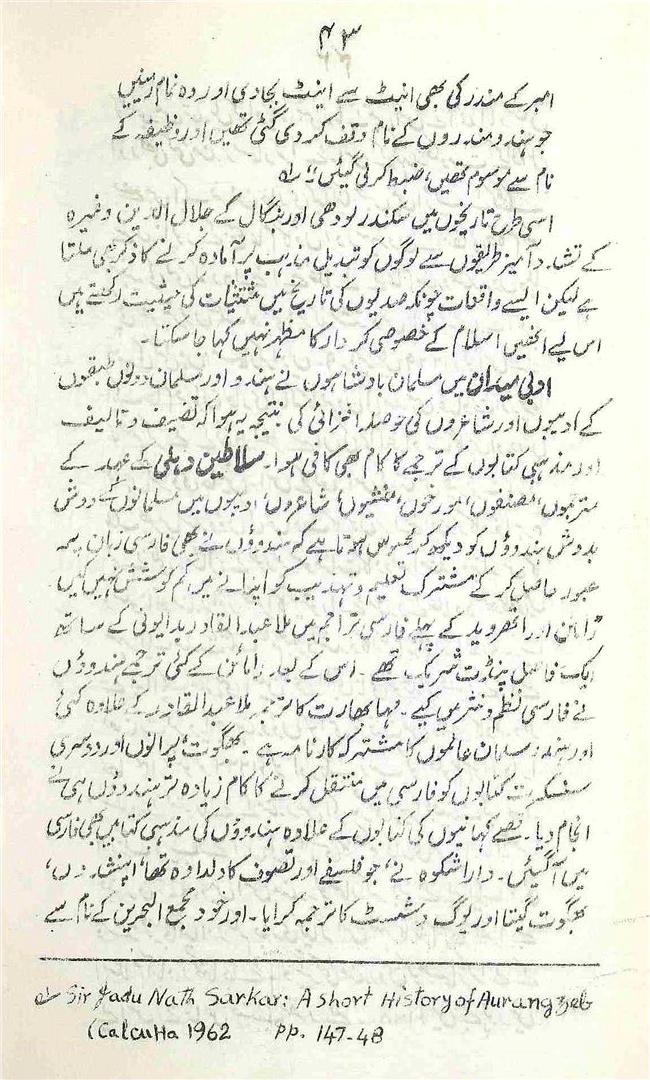 ۴۳
امبر کے مندر کی بھی اینٹ سے اینٹ بجا دی اور وہ تمام زمینیں
جو ہندو مندروں کے نام وقف کر دی گئی تھیں اور وظیفہ کے
نام سے موسوم تھیں، ضبط کر لی گئیں۔" لہ
اسی طرح تاریخوں میں سکندر لودھی اور بنگال کے جلال الدین وغیرہ
کے تشدد آمیز طریقوں سے لوگوں کو تبدیل مذہب پر آمادہ کرنے کا ذکر بھی ملتا
ہے لیکن ایسے واقعات چونکہ صدیوں کی تاریخ میں مستثنیات کی حیثیت رکھتے ہیں
اس لیے انھیں اسلام کے خصوصی کردار کا مظہر نہیں کہا جا سکتا۔
ادبی میدان میں مسلمان بادشاہوں نے ہندو اور مسلمان دونوں طبقوں
کے ادیبوں اور شاعروں کی حوصلہ افزائی کی نتیجہ یہ ہوا کہ تصنیف و تالیف
اور مذہبی کتابوں کے ترجمے کا کام بھی کافی ہوا۔ سلاطین دہلی کے عہد کے
مترجموں، مصنفوں، مورخوں، منشیوں، شاعروں، ادیبوں میں مسلمانوں کے دوش
بدوش ہندوؤں کو دیکھ کر محسوس ہوتا ہے کہ ہندوؤں نے بھی فارسی زبان پہ
عبور حاصل کر کے مشترک تعلیم و تہذیب کو اپنانے میں کم کوشش نہیں کی۔
رامائن اور اتھروید کے پہلے فارسی تراجم میں ملا عبد القادر بدایونی کے ساتھ
ایک فاضل پنڈت شریک تھے۔ اس کے بعد رامائن کے کئی ترجمے ہندوؤں
نے فارسی نظم و نثر میں کیے۔ مہا بھارت کا ترجمہ ملا عبد القادر کے علاوہ کئی
اور ہندو مسلمان عالموں کا مشترکہ کارنامہ ہے۔ بھگوت، پرانوں اور دوسری
سنسکرت کتابوں کو فارسی میں منتقل کرنے کا کام زیادہ تر ہندوؤں ہی نے
انجام دیا۔ قصے کہانیوں کی کتابوں کے علاوہ ہندوؤں کی مذہبی کتابیں بھی فارسی
میں آگئیں۔ دارا شکوہ نے، جو فلسفے اور تصوف کا دلدادہ تھا، اپنشدوں،
بھگوت گیتا اور یوگ وشسٹ کا ترجمہ کرایا۔ اور خود مجمع البحرین کے نام سے
لہ Sir Jadu Nath Sarkar: A short History of Aurangzeb
(Calcutta 1962 PP. 147-48